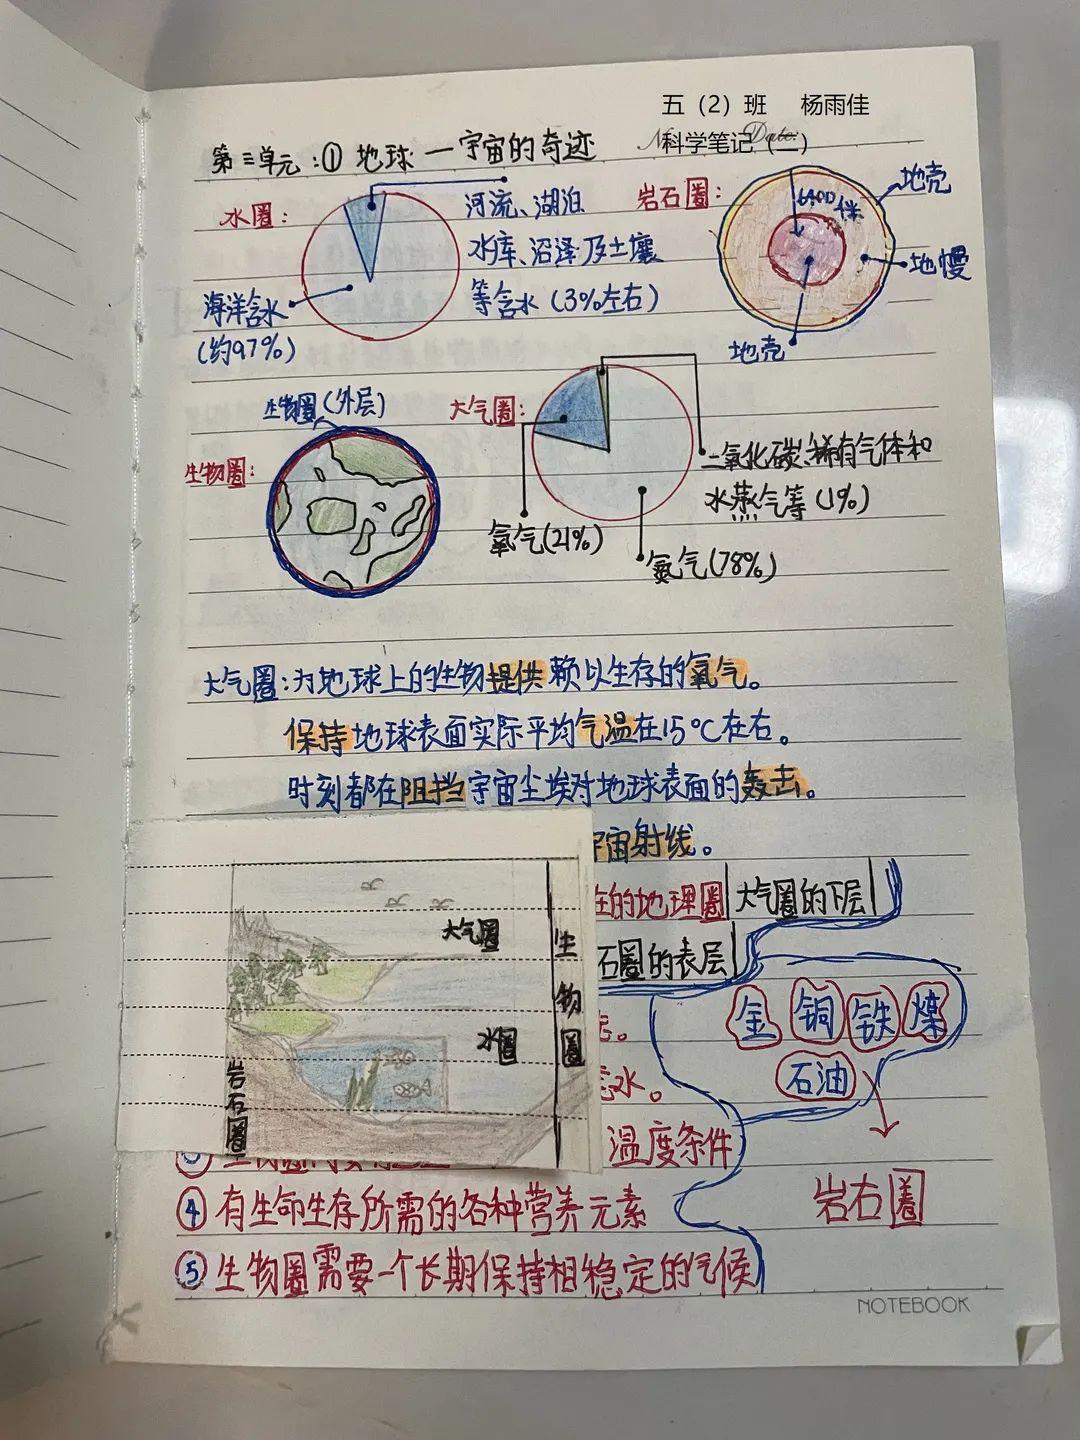 五（2）班 杨雨佳
科学笔记（二）
第三单元:①地球一宇宙的奇迹
水圈:
河流、湖泊
水库、沼泽及土壤
等含水(3%左右)
海洋含水
(约97%)
岩石圈:
地壳
地慢
地壳
生物圈(外层)
生物圈:
大气圈:
二氧化碳、稀有气体和
水蒸气等(1%)
氧气(21%)
氮气(78%)
大气圈:为地球上的生物提供赖以生存的氧气。
保持地球表面实际平均气温在15℃在右。
时刻都在阻挡宇宙尘埃对地球表面的轰击。
宇宙射线。
在的地理圈 大气圈的下层
石圈的表层
金 铜 铁 煤
石油
岩右圈
大气圈
水圈
生物圈
岩石圈
水。
温度条件
④有生命生存所需的各种营养元素
⑤生物圈需要一个长期保持相稳定的气候
NOTEBOOK